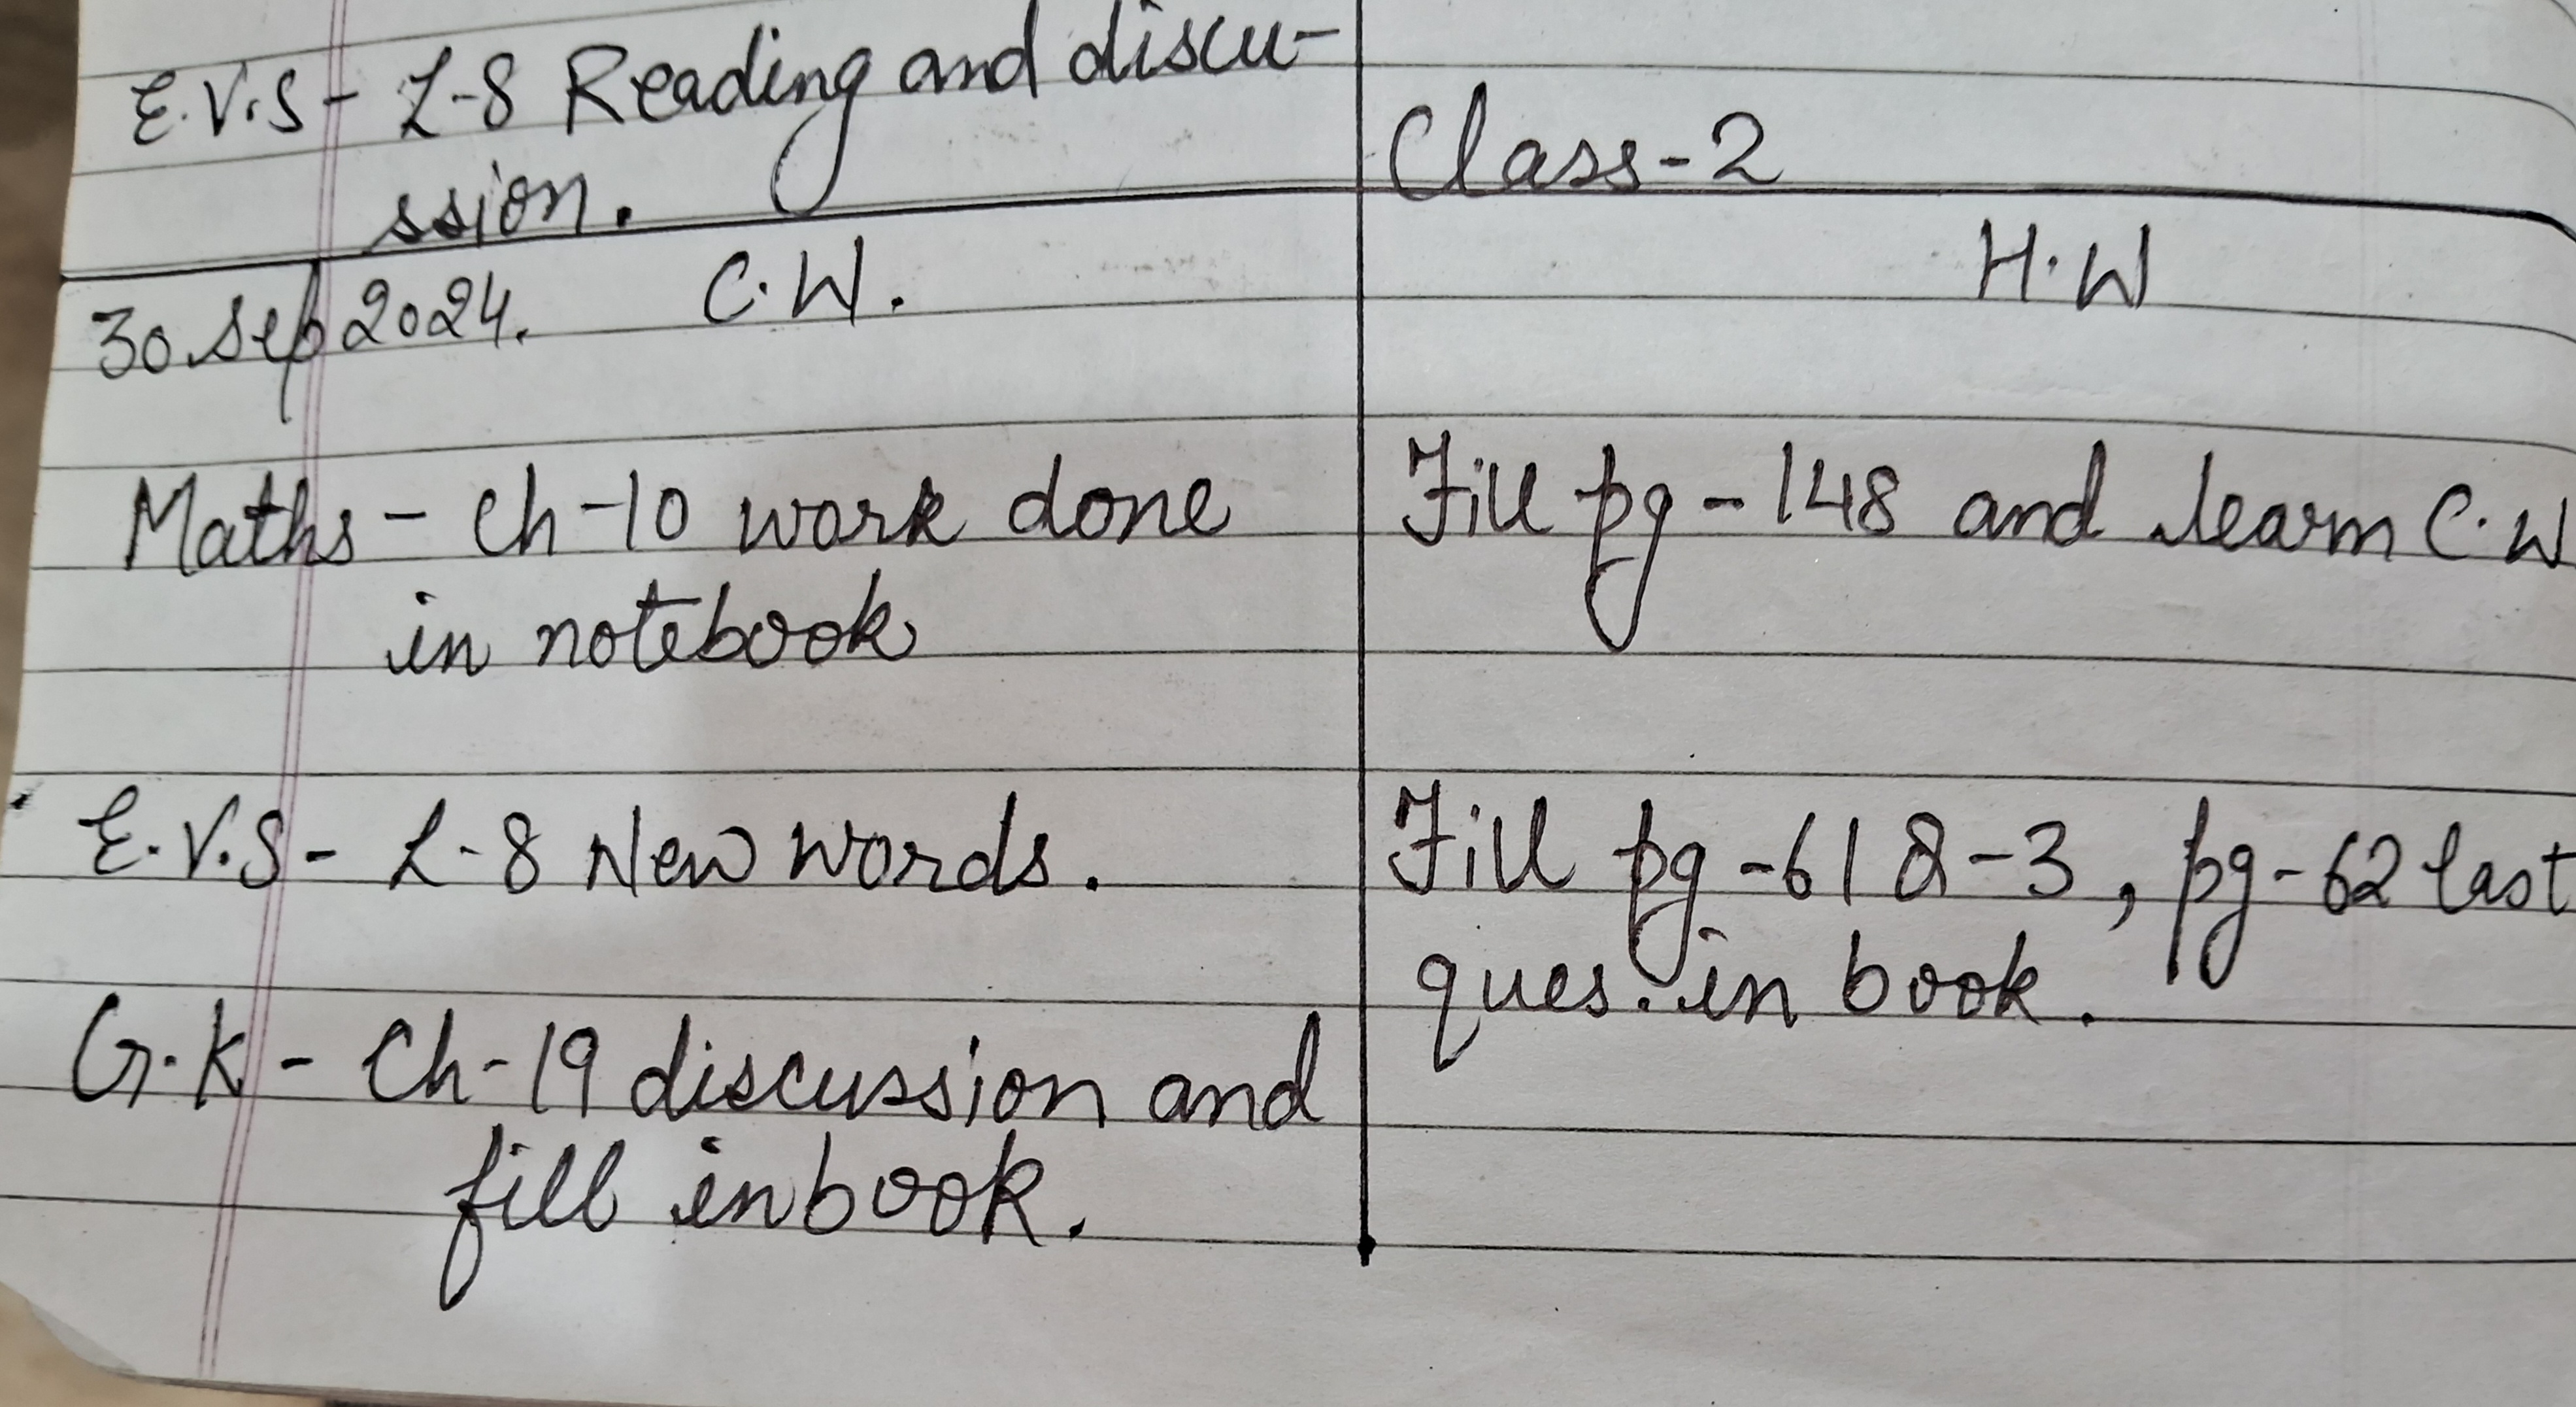 E.V.S - L-8 Reading and discu-
ssion.
Class-2
30 Sep 2024. C.W.
H.W
Maths - Ch-10 work done
in notebook
Fill pg-148 and learn C.W
E.V.S - L-8 New words.
Fill pg-61 Q-3, pg-62 last
ques. in book.
G.K - Ch-19 discussion and
fill in book.